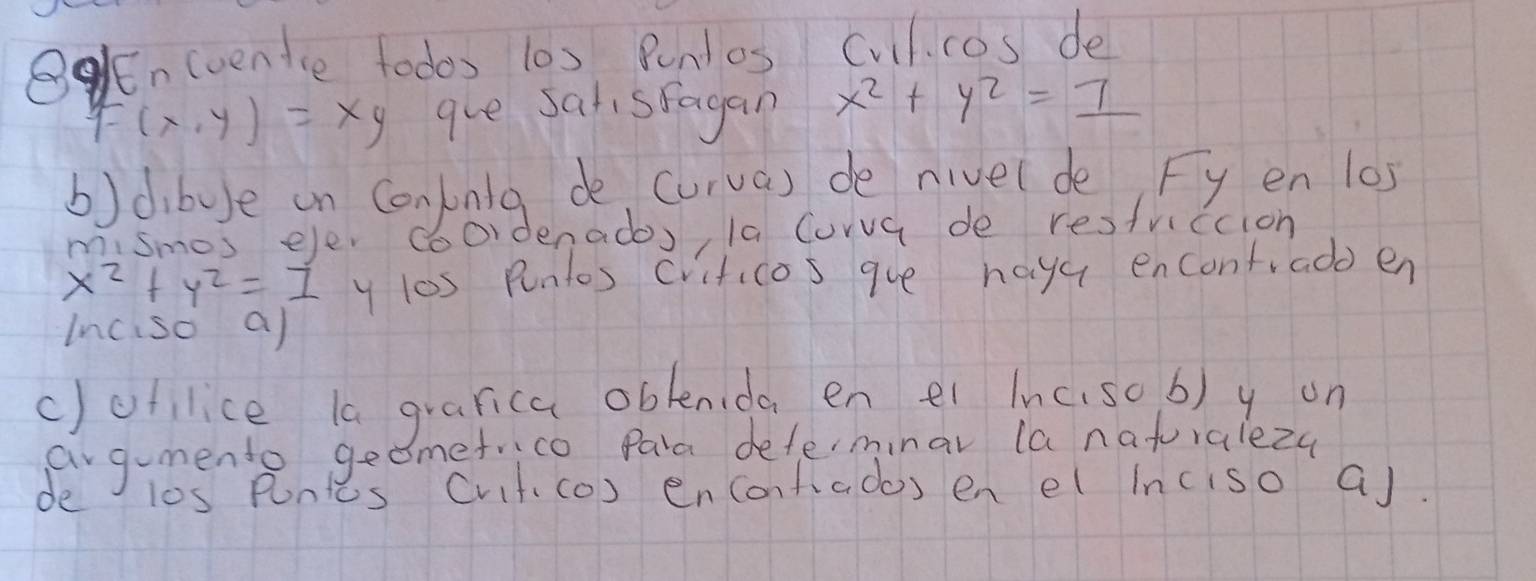 8 a) Encuentre todos los Puntos Criticos de
F(x,y) = xy que satisfagan x² + y² = 1
b) dibuje un Conjunto de Curvas de nivel de F y en los
mismos ejes coordenados, la Curva de restriccion
x² + y² = 1 y los Puntos Criticos que haya encontrado en
Inciso a)
c) Utilice la grafica obtenida en el Inciso b) y un
argumento geometrico Para determinar la naturaleza
de los Puntos Criticos encontrados en el Inciso a).